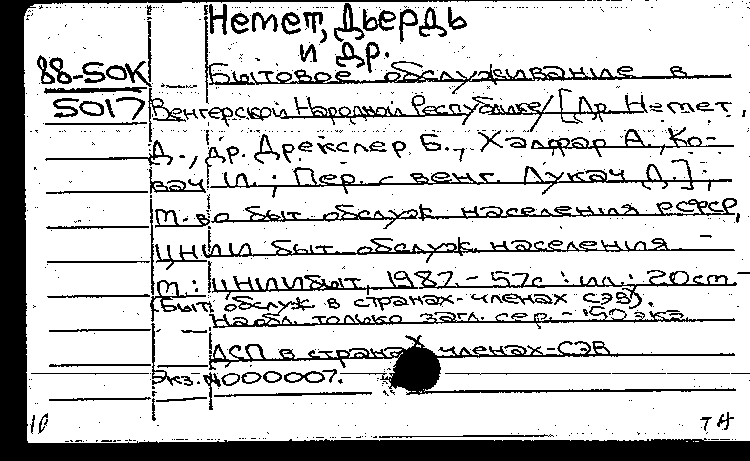 Немет, Дьердь
и др.
88-50К Бытовое обслуживание в
5017 Венгерской Народной Республике / [Др. Немет
Д., др. Дрекслер Б., Халфар А., Ко-
вач И.; Пер. с венг. Лукач Д.];
М-во быт. обслуж. населения РСФСР,
ЦНИИ быт. обслуж. населения. -
М.: ЦНИИбыт, 1987. - 57с : ил.; 20см. -
(Быт. обслуж. в странах-членах СЭВ).
только загл. сер. - 150 экз
ДСП в странах членах-СЭВ
Экз. N000007.
10